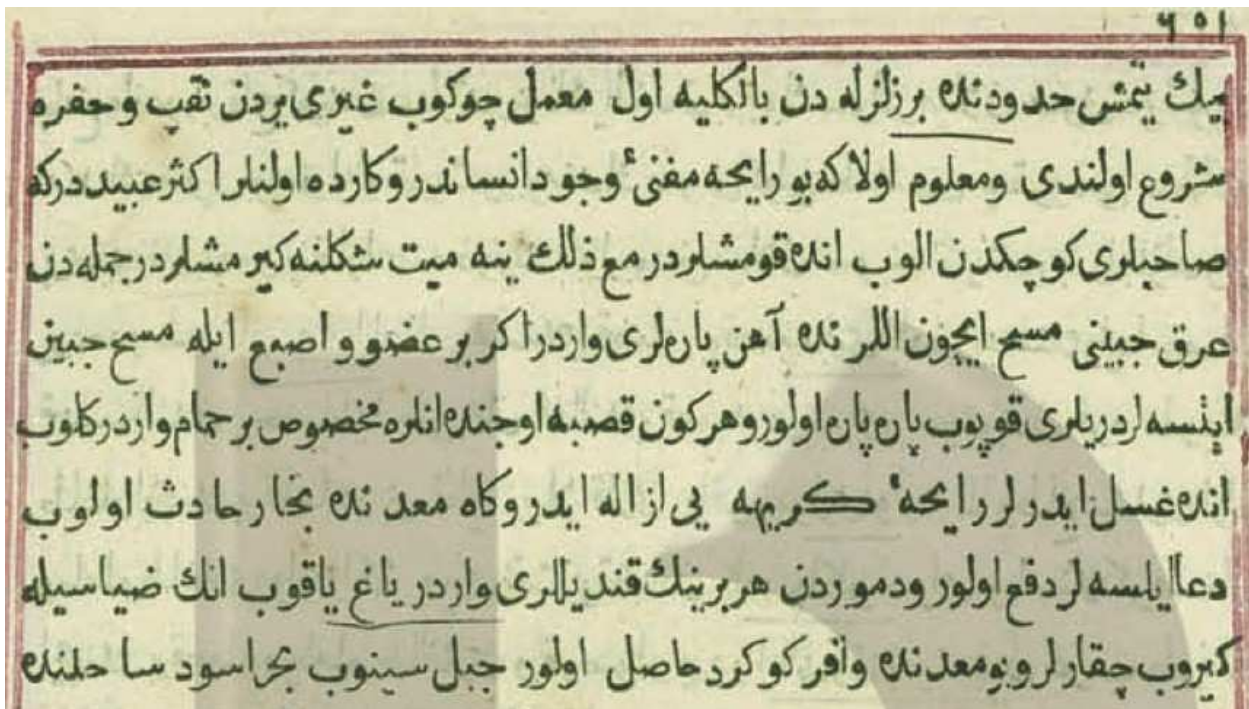 ٦٥١
بيك يتمش حدودنده بر زلزله دن بالكليه اول معمل چوكوب غيرى يردن نقب و حفره
شروع اولندى ومعلوم اولا كه بو رايحه مفنئ وجود انساندر وكارده اولنلر اكثر عبيددركه
صاحبلرى كوچكدن الوب انده قومشلردر مع ذلك ينه ميت شكلنه كيرمشلردر جمله دن
عرق جبينى مسح ايچون اللرنده آهن پاره لرى واردر اكر بر عضو و اصبع ايله مسح جبين
ايتسه لر دريلرى قوپوب پاره پاره اولور وهركون قصبه اوجنده انلره مخصوص بر حمام واردر كلوب
انده غسل ايدرلر رايحهٔ كريهه يى ازاله ايدر وكاه معدنده بخار حادث اولوب
دعا ايلسه لر دفع اولور ودموردن هر برينك قنديللرى واردر ياغ ياقوب انك ضياسيله
كيروب چقارلر وبو معدنده وافر كوكرد حاصل اولور جبل سينوب بحر اسود ساحلنده